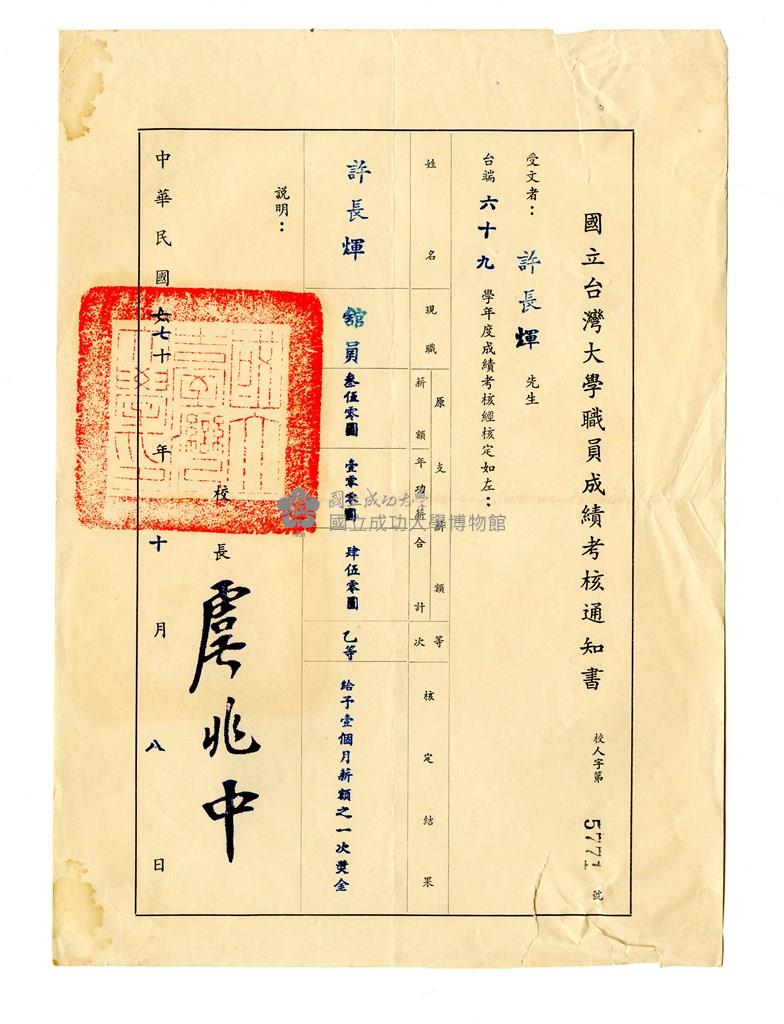 國立台灣大學職員成績考核通知書
校人字第 5771 號
受文者：許長煇 先生
台端六十九學年度成績考核經核定如左：
姓名 現職 原支薪額 薪額 年功薪 合計 等次 核定結果
許長煇 舘員 叁伍零圓 壹零零圓 肆伍零圓 乙等 給予壹個月薪額之一次獎金
説明：
校長 虞兆中
中華民國七十年十月八日
國立成功大學
國立成功大學博物館